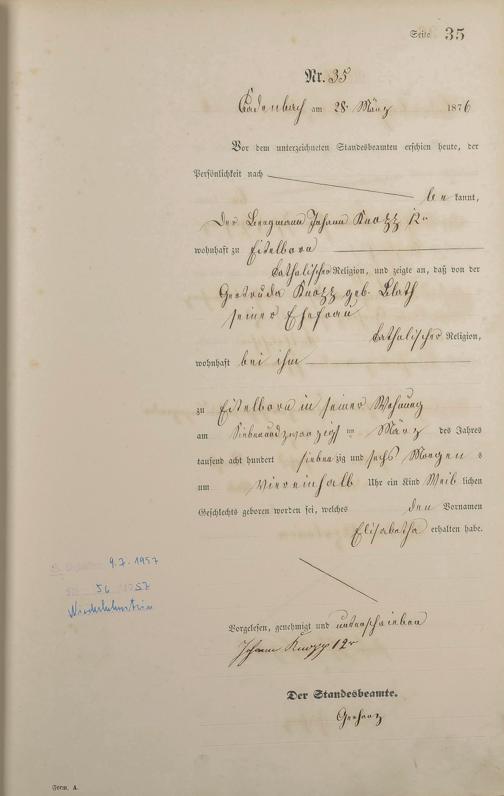 Seite 35
Nr. 35
Cadenbach am 28. März 1876
Vor dem unterzeichneten Standesbeamten erschien heute, der
Persönlichkeit nach
be kannt,
der Bergmann Johann Knopp 12r
wohnhaft zu Eitelborn
katholischer Religion, und zeigte an, daß von der
Gertruda Knopp geb. Blath
seiner Ehefrau
katholischer Religion,
wohnhaft bei ihm
zu Eitelborn in seiner Wohnung
am Siebenundzwanzigsten März des Jahres
tausend acht hundert sieben zig und sechs Morgen s
um viereinhalb Uhr ein Kind Weib lichen
Geschlechts geboren worden sei, welches den Vornamen
Elisabetha erhalten habe.
Vorgelesen, genehmigt und unterschrieben
Johann Knopp 12r
Der Standesbeamte.
9.7.1957
56 57
Niederlahnstein
Form. A.